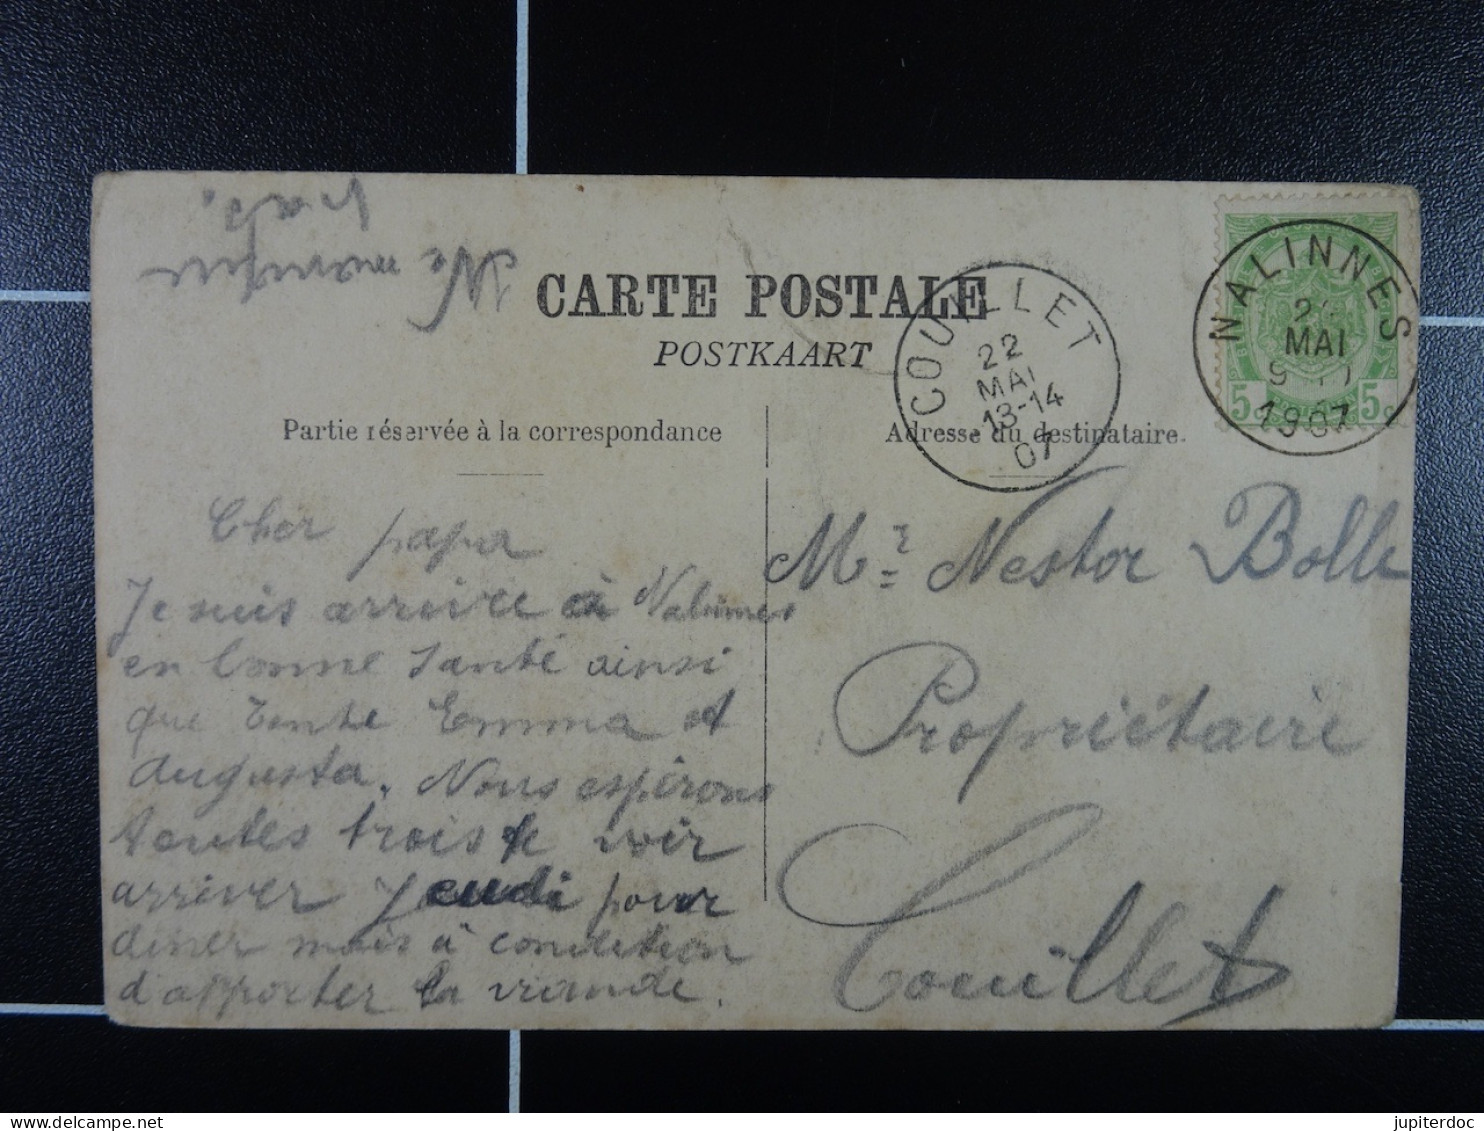 CARTE POSTALE
POSTKAART
Partie réservée à la correspondance
Adresse du destinataire.
COUILLET
22
MAI
13-14
07
NALINNES
22
MAI
9
1907
5c 5c
Cher papa
Je suis arrivée à Nalinnes
en bonne santé ainsi
que Tante Emma et
Augusta. Nous espérons
toutes trois te voir
arriver jeudi pour
diner mais à condition
d'apporter la viande.
Mr Nestor Bolle
Propriétaire
Couillet
jupiterdoc